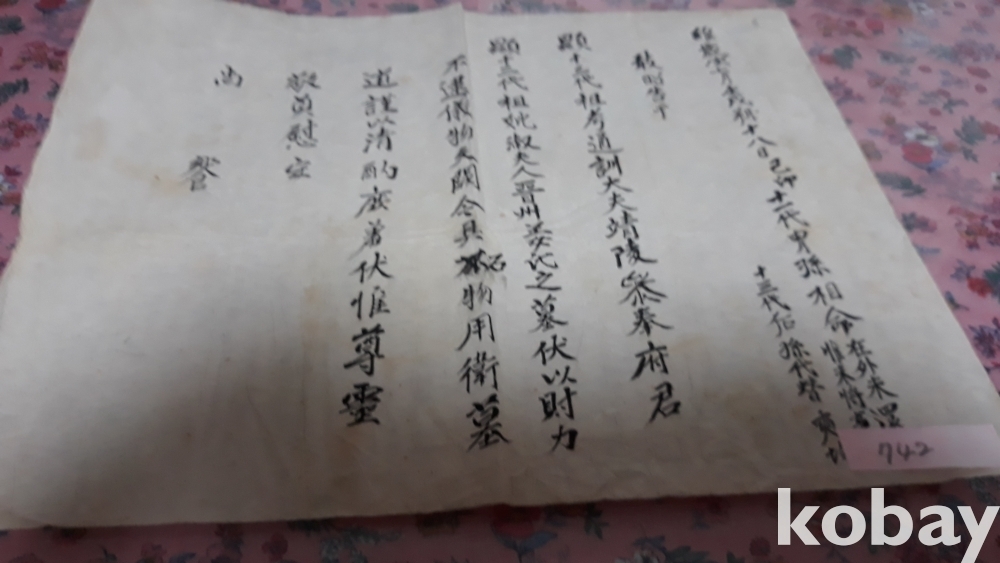 十八日己卯十一代冑孫相命在外未還
十三代 孫代替
敢昭告于
顯十三代祖考通訓大夫靖陵參奉府君
顯十三代祖妣淑夫人晉州姜氏之墓伏以財力
不逮儀物久闕今具石物用衛墓
道謹以清酌庶羞伏惟尊靈
是慰安
尚
饗
742
kobay